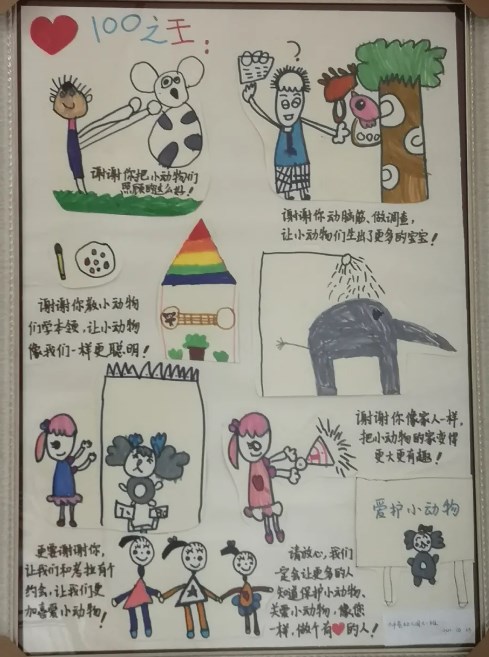 100之王:
谢谢你把小动物们
照顾的这么好!
?
谢谢你动脑筋、做调查,
让小动物们生出了更多的宝宝!
谢谢你教小动物
们学本领,让小动物
像我们一样更聪明!
谢谢你像家人一样,
把小动物的家变得
更大更有趣!
爱护小动物
更要谢谢你,
让我们和考拉有个
约会,让我们更
加喜爱小动物!
请放心,我们
一定会让更多的人
知道保护小动物、
关爱小动物,像您
一样,做个有❤的人!